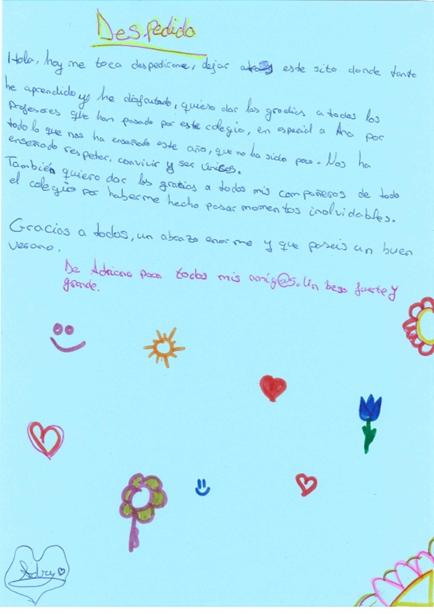 Despedida
Hola, hoy me toca despedirme, dejar atrás este sitio donde tanto
he aprendido y he disfrutado, quiero dar las gracias a todos los
profesores que han pasado por este colegio, en especial a Ana por
todo lo que nos ha enseñado este año, que no ha sido poco. Nos ha
enseñado respetar, convivir y ser
También quiero dar las gracias a todos mis compañeros de todo
el colegio por haberme hecho pasar momentos inolvidables.
Gracias a todos, un abrazo enorme y que paseis un buen
verano.
De Adriana para todos mis amig@s. Un beso fuerte y
grande.